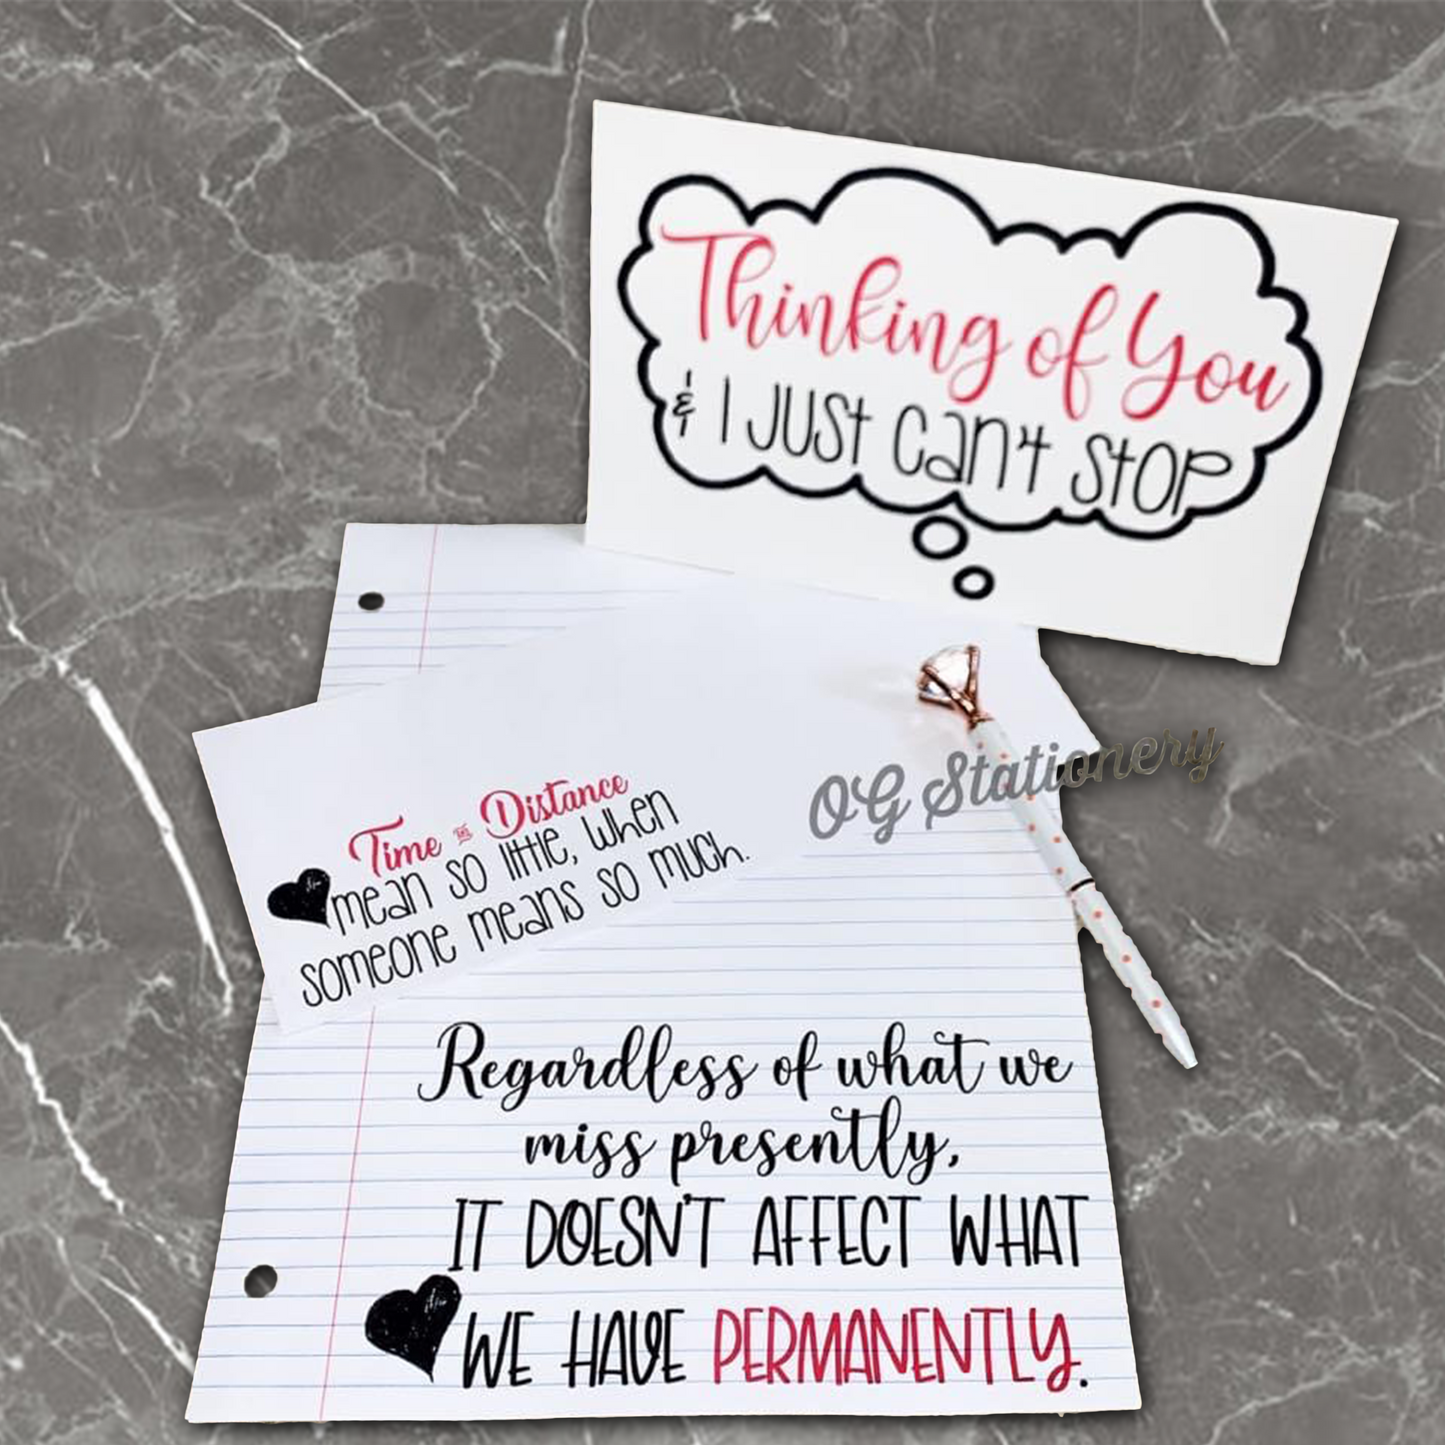 Thinking of You
& I JUSt can't StOP
OG Stationery
Time and Distance
mean so little, when
someone means so much.
Regardless of what we
miss presently,
IT DOESN'T AFFECT WHAT
WE HAVE PERMANENTLY.